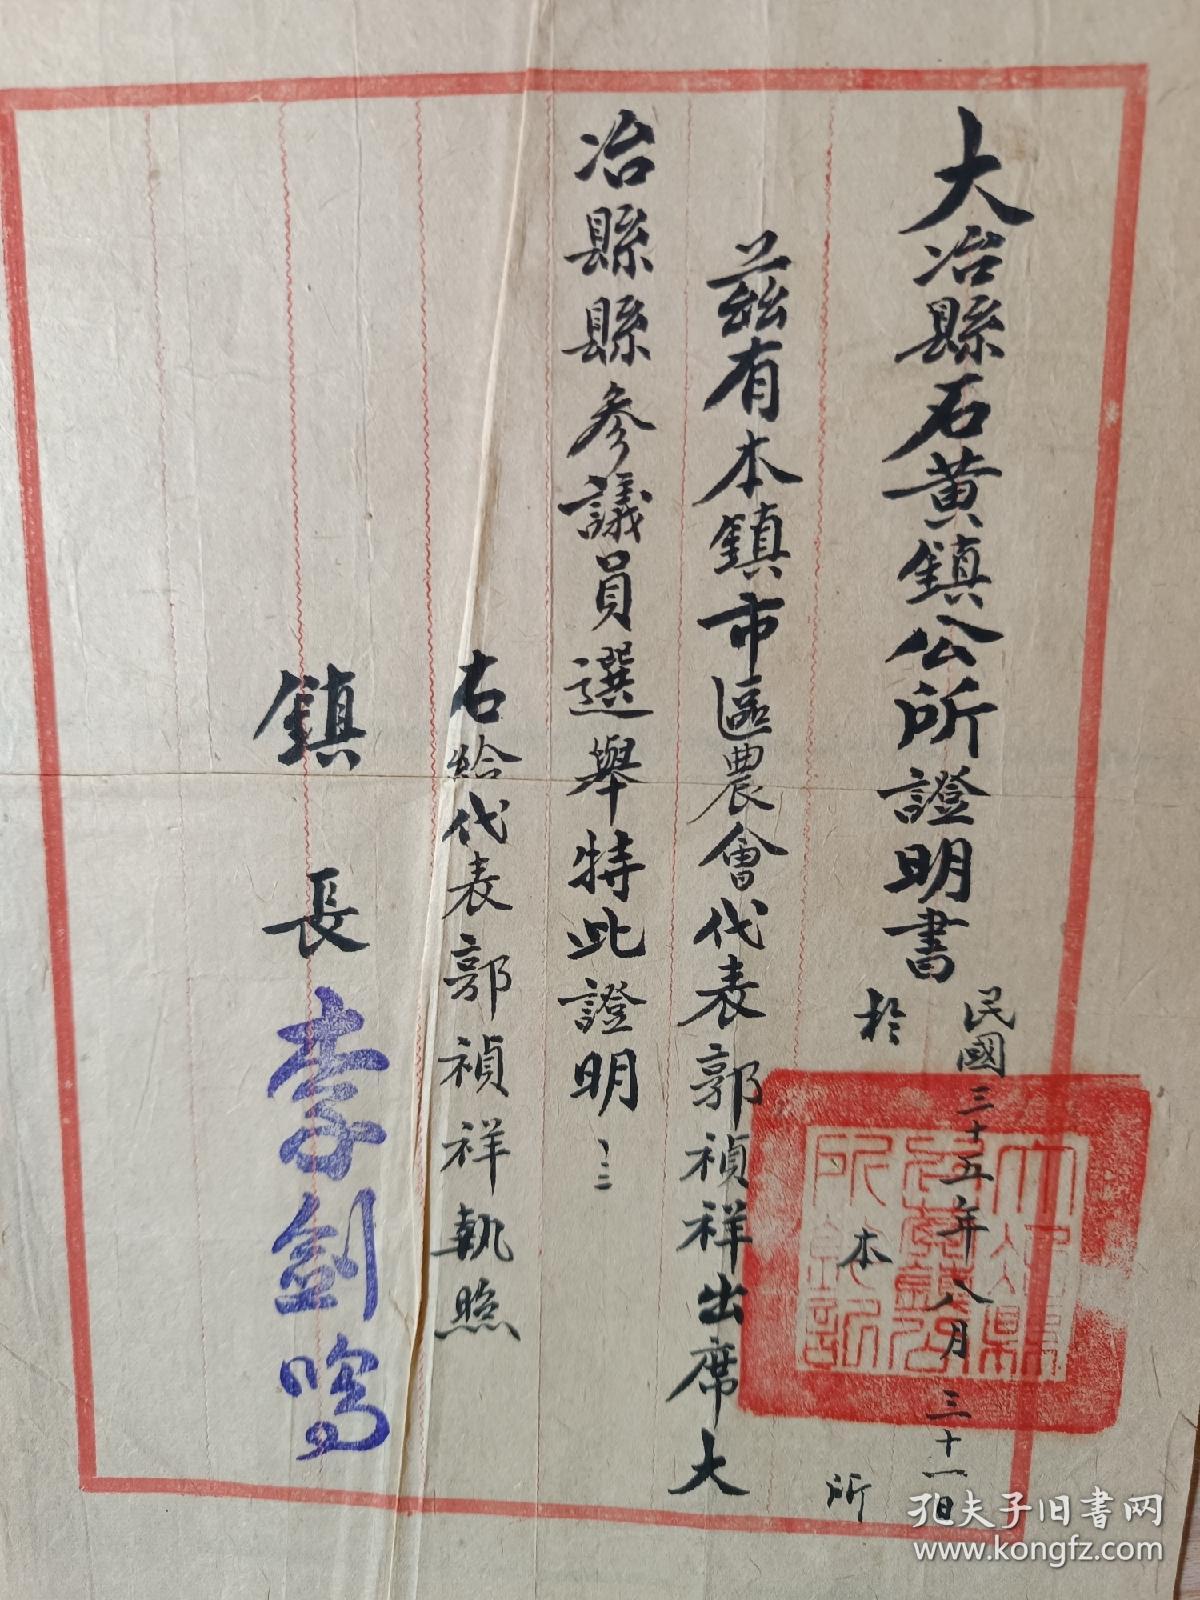 大冶縣石黃鎮公所證明書
民國三十五年八月三十一日
於本所
茲有本鎮市區農會代表郭禎祥出席大
冶縣縣參議員選舉特此證明
右給代表郭禎祥執照
鎮長李劍鳴
大冶縣
石黃鎮公
所鈐記
孔夫子旧书网
www.kongfz.com